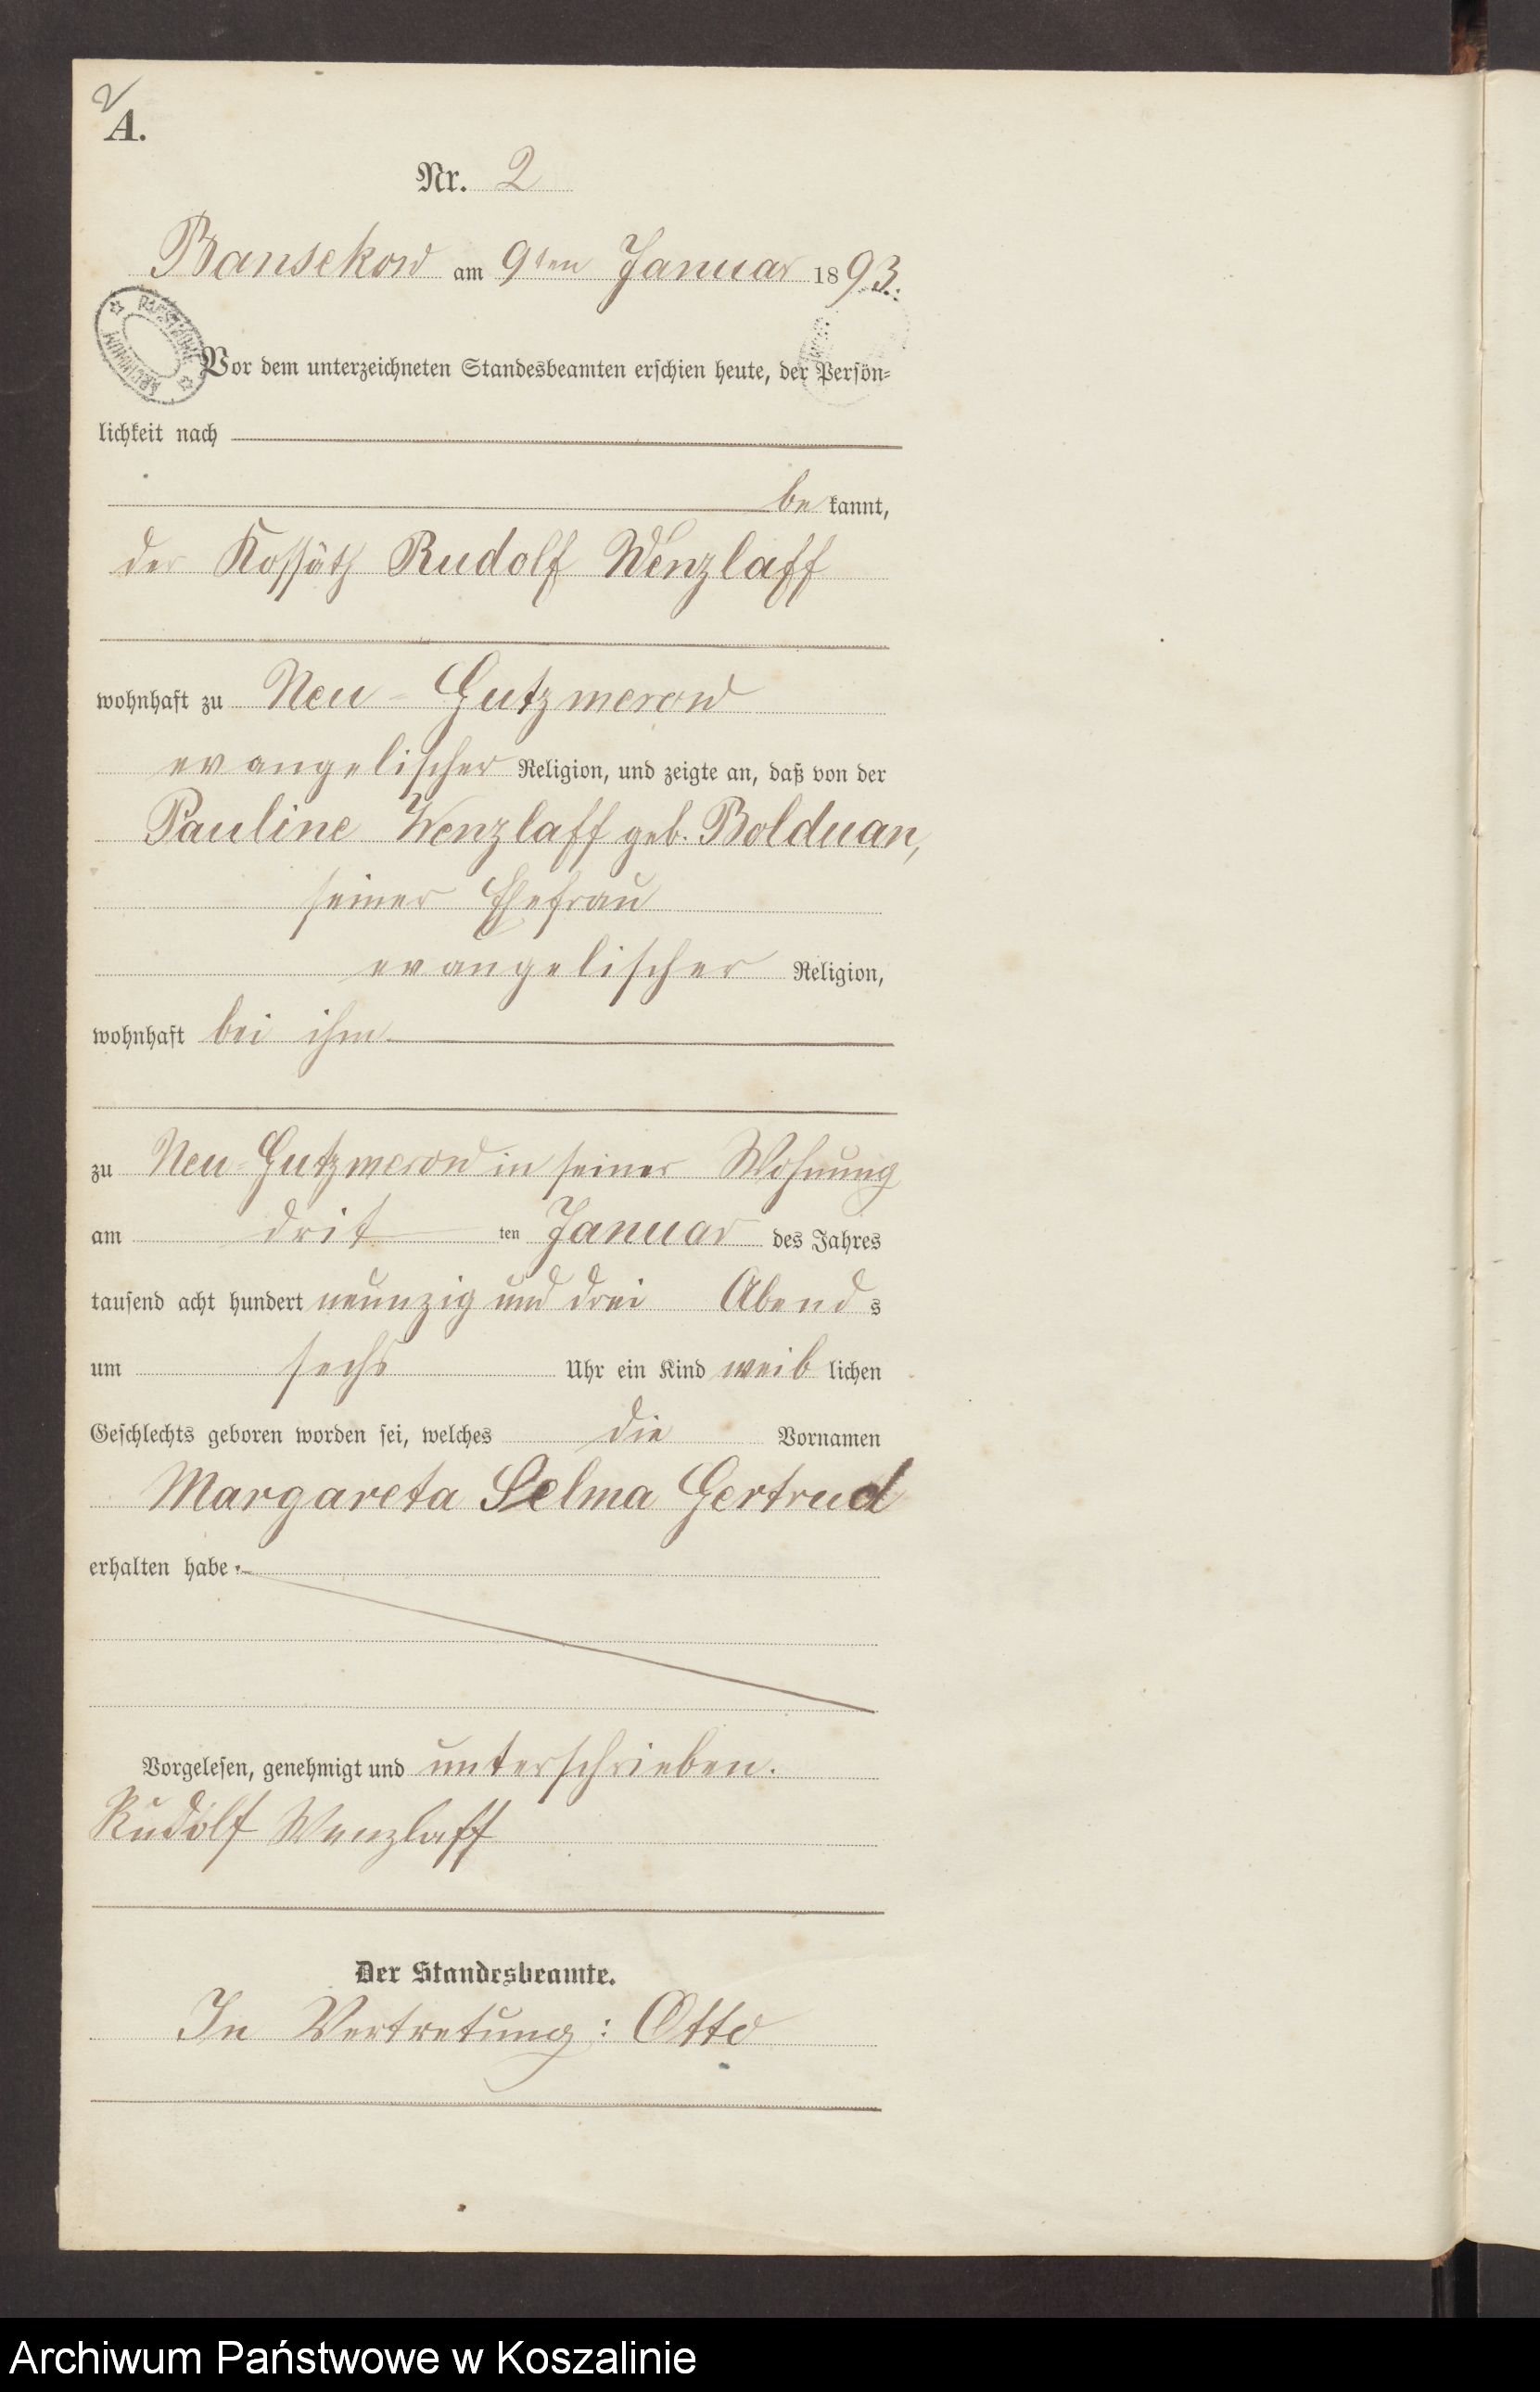 2
A.
Nr. 2
Bansekow am 9ten Januar 1893.
Vor dem unterzeichneten Standesbeamten erschien heute, der Persön-
lichkeit nach
bekannt,
der Kossäth Rudolf Wenzlaff
wohnhaft zu Neu-Gutzmerow
evangelischer Religion, und zeigte an, daß von der
Pauline Wenzlaff geb. Bolduan,
seiner Ehefrau
evangelischer Religion,
wohnhaft bei ihm
zu Neu-Gutzmerow in seiner Wohnung
am dritten Januar des Jahres
tausend acht hundert neunzig und drei Abends
um sechs Uhr ein Kind weiblichen
Geschlechts geboren worden sei, welches die Vornamen
Margareta Selma Gertrud
erhalten habe.
Vorgelesen, genehmigt und unterschrieben.
Rudolf Wenzlaff
Der Standesbeamte.
In Vertretung: Otto
Archiwum Państwowe w Koszalinie